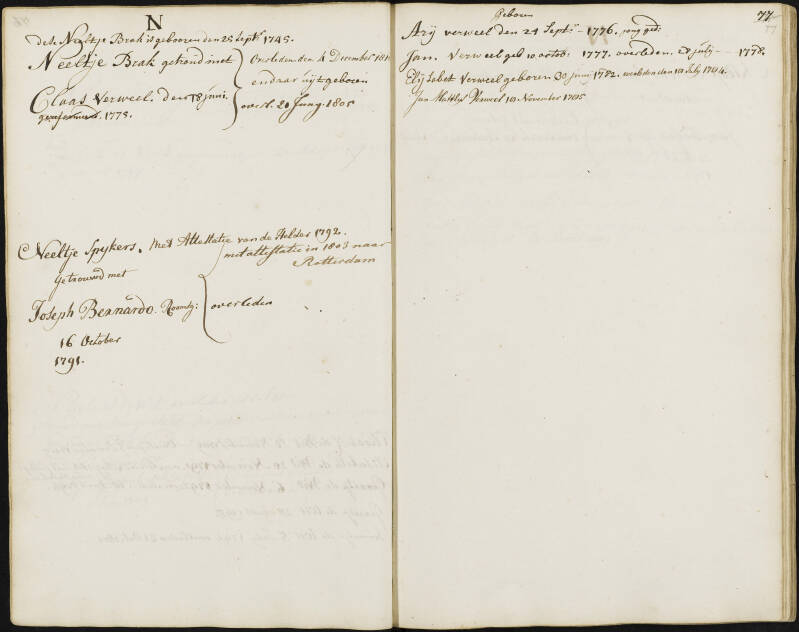 N
dese Neeltje Brak is gebooren den 25 Septr. 1745.
Neeltje Brak getroud met
Claas Verweel. den 18 junii.
1775.
Overleden den 4 December 181
en daar uijt geboren
overl. 20 Juny. 1805
Neeltje Spykers. Met Attestatie van de Helder 1792.
met attestatie in 1803 naar
Rotterdam
getrouwd met
Joseph Bernardo. Roomsg: overleden
16 October
1791.
77
Geboren
Arij verweel den 24 Septr. - 1776. jong ged:
Jan. Verweel geb 10 octob: 1777. overleden. 28 july - 1778.
Elijsabet Verweel geboren 30 junij 1782. den 10 July 1794.
Jan Matthys Verweel 10 November 1785